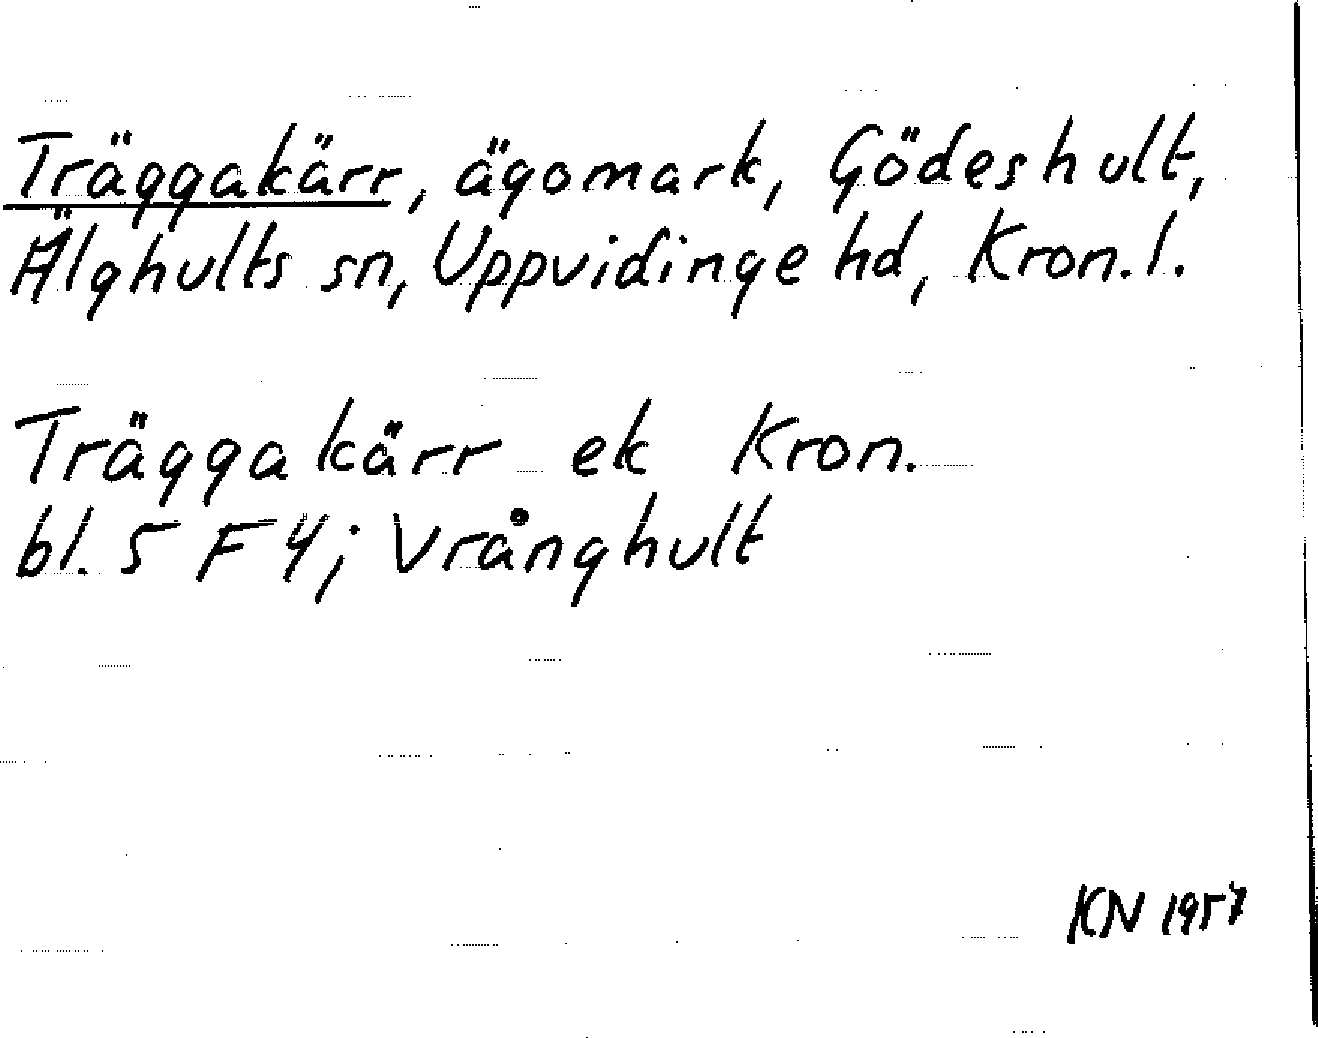 Träggakärr, ägomark, Gödeshult,
Älghults sn, Uppvidinge hd, Kron. l.
Träggakärr ek Kron.
bl. 5 F 4; Vrånghult
KN 1957